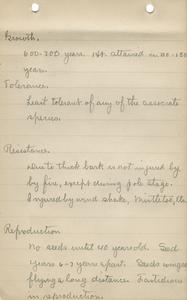 Growth.
600-700 years. Ht. attained in
years.
Tolerance.
Least tolerant of any of the associate
species.
Resistance.
Due to thick bark is not injured by
by fire, except during pole stage.
Injured by wind shake, Mistletoe,
Reproduction
No seeds until 40 years old. Seed
years 2-3 years apart. Seeds winged
flying a long distance. Fastidious
in reproduction.